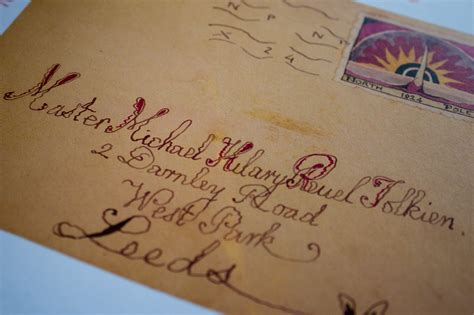 NORTH 1924 POLE
Master Michael Hilary Reuel Tolkien.
2 Darnley Road
West Park
Leeds